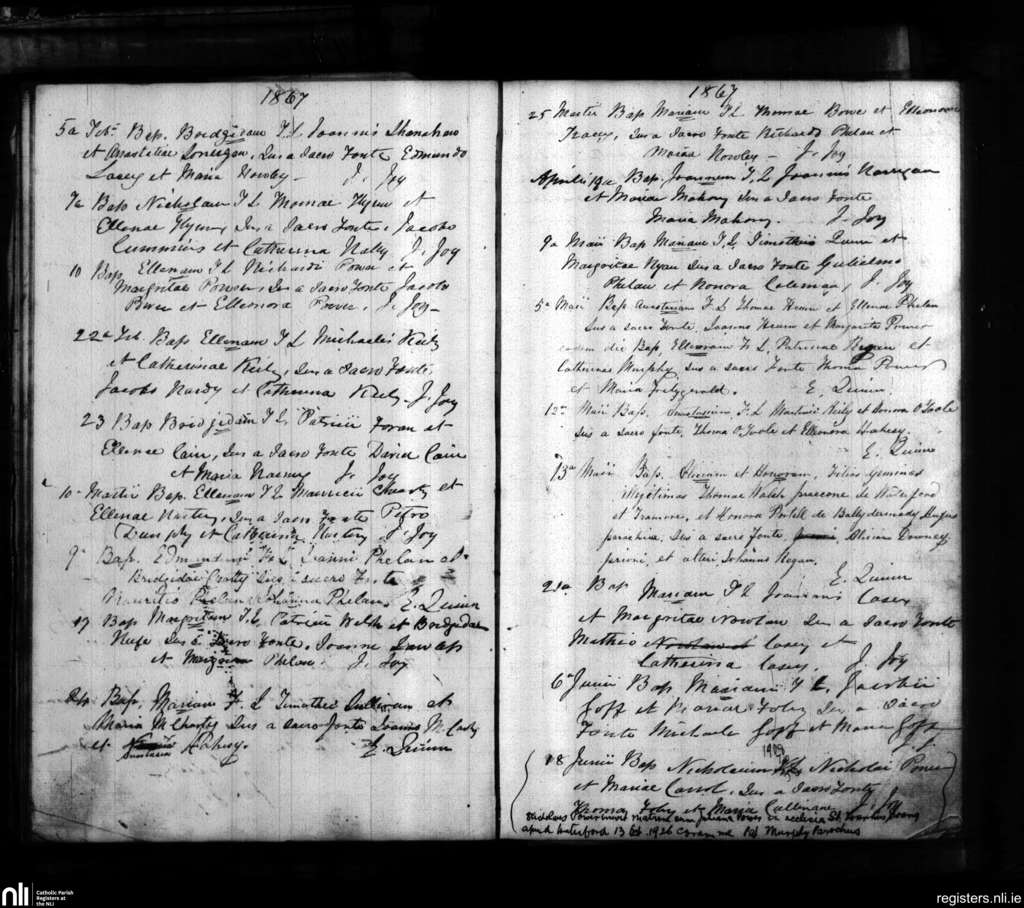 1867
5a Feb. Bap. Bridgidam F. L. Joannis Shanahan
et Anastatiae Lonergan, Sus a Sacro Fonte Edmundo
Lacey et Maria Howley - J. Joy
7a Bap Nicholaum F L Thomae Flynn et
Ellenae Flynn, Sus a Sacro Fonte, Jacobo
Cummins et Catherina Nally J. Joy
10 Bap. Ellenam F L Richardi Power et
Margritae Power, Sus a Sacro Fonte Jacobo
Power et Ellenora Power. J. Joy -
22a Feb. Bap. Ellenam F L Michaelis Keily
et Catherinae Keily, Sus a Sacro Fonte
Jacobo Hardy et Catherina Keily. J. Joy
23 Bap Bridgidam F L Patricii Foran et
Ellenae Cain, Sus a Sacro Fonte David Cain
et Maria J. Joy
10a Martii Bap. Ellenam F L Mauricii et
Ellenae Sus a Sacro Fonte Petro
Dunphy et Catherina J. Joy
9a Bap. Edmundum F L Joannis Phelan et
Bridgidae Crotty Sus a sacro Fonte
Mauritio Phelan et Johanna Phelan. E. Quinn
17 Bap Margritam F. L. Patricii Welsh et Bridgidae
Sus a Sacro Fonte, Joanne
et Phelan. J. Joy
24 Bap. Mariam F. L Timothei Sullivan et
Maria McCarthy Sus a sacro fonte Joannes McCarthy
et Anastasia Fahey. E. Quinn
1867
25 Martii Bap Mariam F L Thomae Bowe et Ellenorae
Tracey, Sus a Sacro Fonte Richardo Phelan et
Maria Howley - J. Joy
Aprilis 19a Bap. Joannem F. L Joannis Horrigan
et Mariae Mahony Sus a Sacro Fonte
Maria Mahony. J. Joy
9a Maii Bap Mariam F. L. Timothii Quinn et
Margritae Ryan Sus a Sacro Fonte Gulielmo
Phelan et Honora Coleman, J. Joy
5a Maii Bap F. L Thomae Hearn et Ellenae Phelan
Sus a sacro fonte, Joannes Hearn et Margarita Power
eodem die Bap. Ellenoram F L. Patricii et
Catherinae Murphy Sus a sacro Fonte Thoma Power
et Maria Fitzgerald. E. Quinn
12a Maii Bap. Anastasiam, F. L Martini Keily et Honora O'Toole
Sus a sacro fonte, Thoma O'Toole et Ellenora
E. Quinn
13a Maii Bap. Oliviam et Honoram filias geminas
illegitimas Thomae Walsh praecone de Waterford
et Tramore, et Honora de hujus
parochiae, Sus a sacro Fonte, Downey
priori, et alteri Johanna Regan.
E. Quinn
21a Bap Mariam F L Joannis Casey
et Margritae Nowlan Sus a Sacro Fonte
Mathio Casey et
Catherina Casey. J. Joy
6a Junii Bap Mariam F L Jacobii
Goff et Mariae Foley Sus a Sacro
Fonte Michaele Goff et Maria Goff
J. J.
18 Junii Bap Nicholaum F L Nicholai Power
et Mariae Carrol, Sus a Sacro Fonte
Thoma Foley et Maria Cullenane J. Joy
Nicholaus Power iniit matrim cum Juliana Power in ecclesia St
apud Waterford 13 Oct. 1926 coram me Pat Murphy Parochus
nli
Catholic Parish
Registers at
the NLI
registers.nli.ie